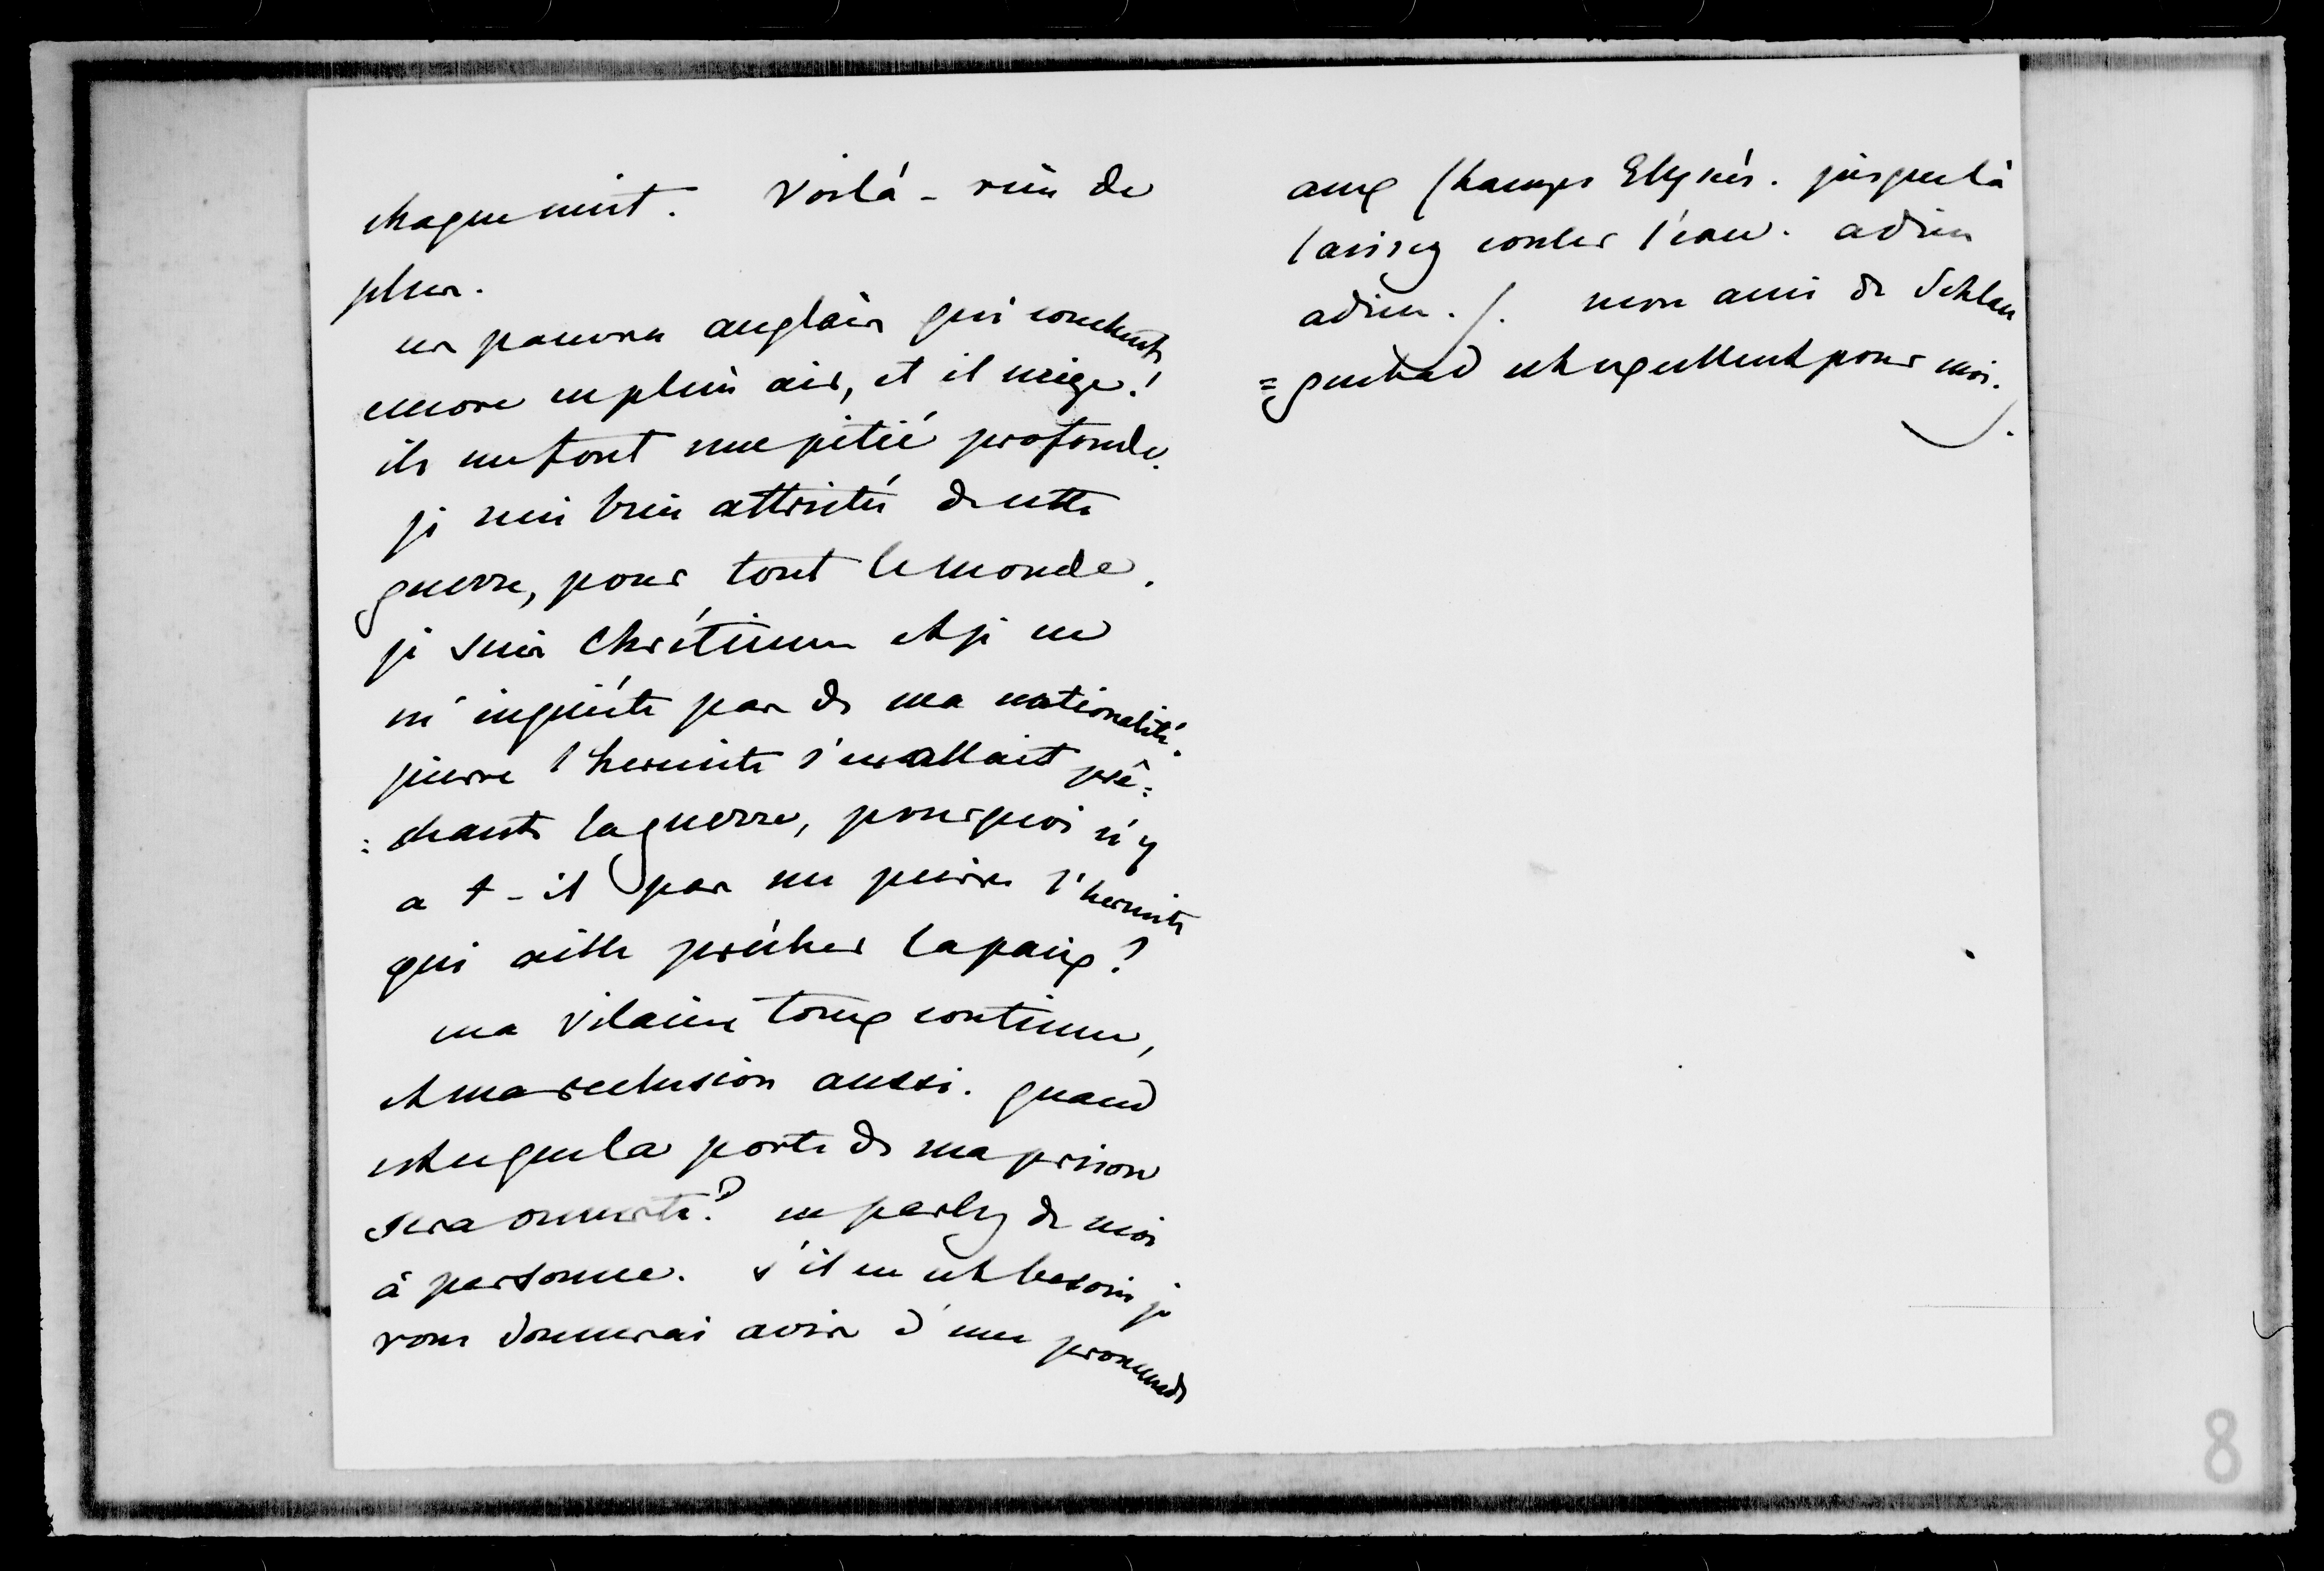 chaque nuit. Voilà - rien de
plus.
ces pauvres anglais qui couchent
encore en plein air, et il neige!
ils me font une pitié profonde.
je suis bien attristée de cette
guerre, pour tout le monde.
je suis Chrétienne et je ne
m'inquiéte pas de ma nationalité.
pierre l'hermite s'en allait prê=
=chant la guerre, pourquoi n'y
a t-il pas un pierre l'hermite
qui aille prêcher la paix?
ma vilaine toux continue,
et ma reclusion aussi. quand
est ce que la porte de ma prison
sera ouverte? ne parlez de moi
à personne. s'il en est besoin je
vous donnerai avis d'une promenade
aux Champs Elysées. jusque là
laissez couler l'eau. adieu
adieu. /. mon ami de Schlan
=genbad est excellent pour moi.
8